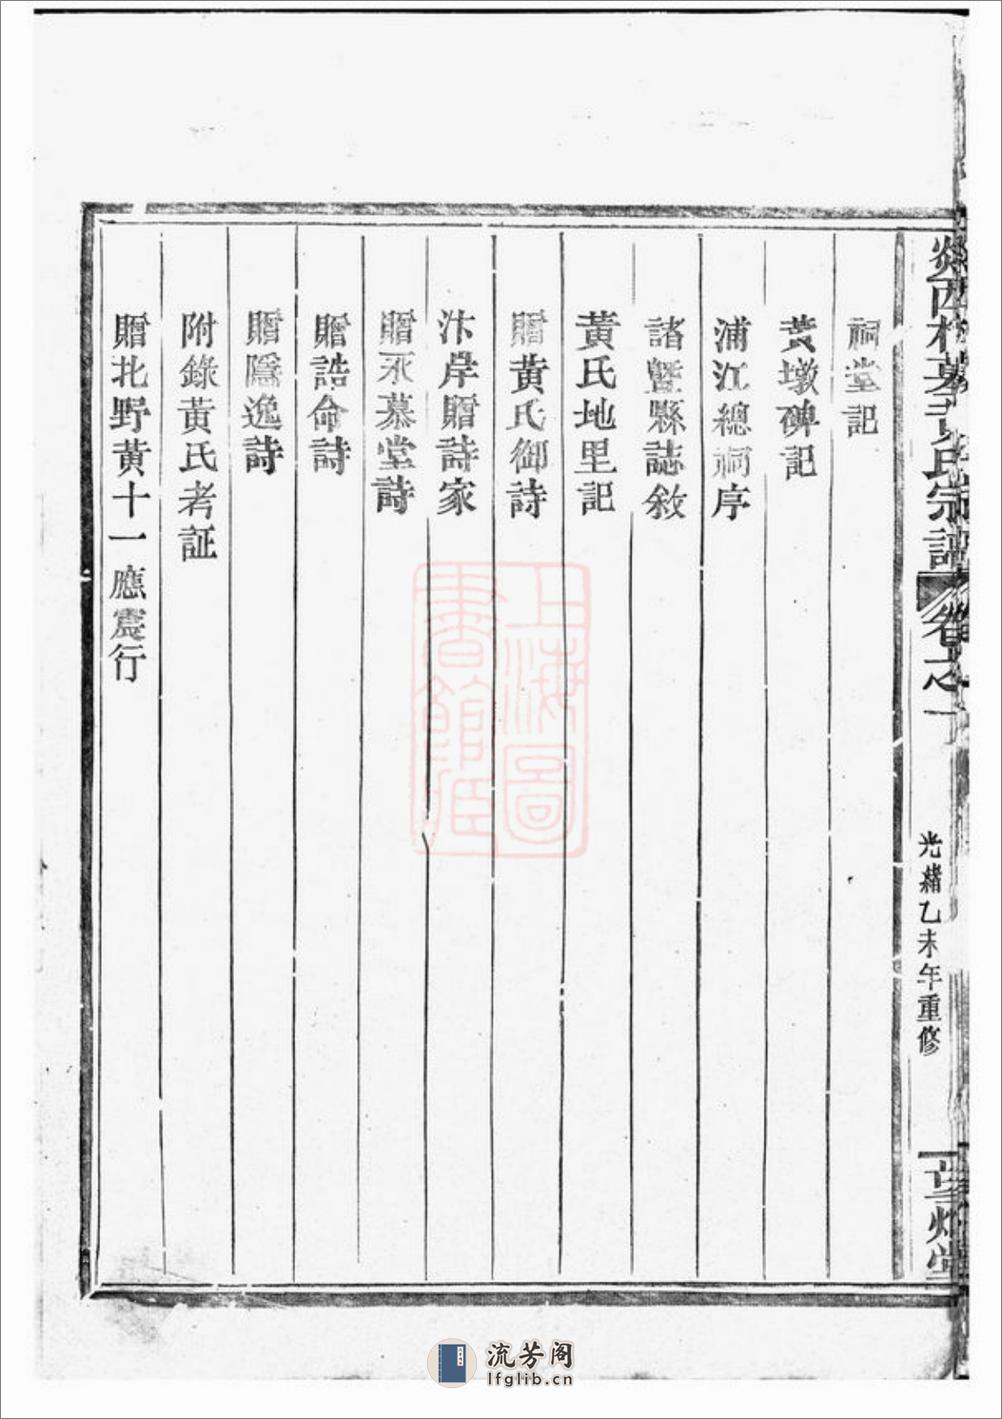 黃氏宗譜
卷之一
光緒乙未年重修
祠堂記
黃墩碑記
浦江總祠序
諸暨縣誌敘
黃氏地里記
贈黃氏御詩
汴岸贈詩家
贈永慕堂詩
贈誥命詩
贈隱逸詩
附錄黃氏考証
贈北野黃十一應震行
上海圖
書館藏
流芳阁
lfglib.cn